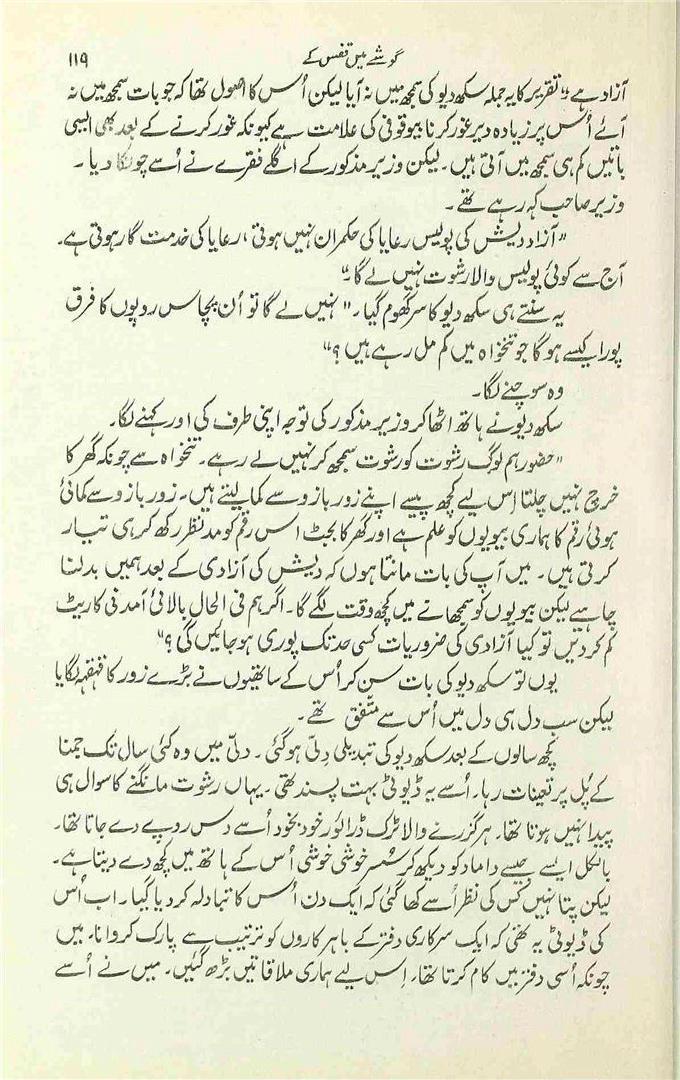 گوشے میں قفس کے ۱۱۹
آزاد ہے" تقریر کا یہ جملہ سکھ دیو کی سمجھ میں نہ آیا لیکن اُس کا اصول تھا کہ جو بات سمجھ میں نہ
آئے اُس پر زیادہ دیر غور کرنا بیوقوفی کی علامت ہے کیونکہ غور کرنے کے بعد بھی ایسی
باتیں کم ہی سمجھ میں آتی ہیں۔ لیکن وزیر مذکور کے اگلے فقرے نے اُسے چونکا دیا۔
وزیر صاحب کہہ رہے تھے۔
"آزاد دیش کی پولیس رعایا کی حکمران نہیں ہوتی، رعایا کی خدمت گار ہوتی ہے۔
آج سے کوئی پولیس والا رشوت نہیں لے گا۔"
یہ سنتے ہی سکھ دیو کا سر گھوم گیا۔ "نہیں لے گا تو اُن پچاس روپوں کا فرق
پورا کیسے ہوگا جو تنخواہ میں کم مل رہے ہیں؟"
وہ سوچنے لگا۔
سکھ دیو نے ہاتھ اٹھا کر وزیر مذکور کی توجہ اپنی طرف کی اور کہنے لگا۔
"حضور ہم لوگ رشوت کو رشوت سمجھ کر نہیں لے رہے۔ تنخواہ سے چونکہ گھر کا
خرچ نہیں چلتا اِس لیے کچھ پیسے اپنے زور بازو سے کما لیتے ہیں۔ زور بازو سے کمائی
ہوئی رقم کا ہماری بیویوں کو علم ہے اور گھر کا بجٹ اس رقم کو مدنظر رکھ کر ہی تیار
کرتی ہیں۔ میں آپ کی بات مانتا ہوں کہ دیش کی آزادی کے بعد ہمیں بدلنا
چاہیے لیکن بیویوں کو سمجھانے میں کچھ وقت لگے گا۔ اگر ہم فی الحال بالائی آمدنی کا ریٹ
کم کر دیں تو کیا آزادی کی ضروریات کسی حد تک پوری ہو جائیں گی؟"
یوں تو سکھ دیو کی بات سن کر اُس کے ساتھیوں نے بڑے زور کا قہقہہ لگایا
لیکن سب دل ہی دل میں اُس سے متّفق تھے۔
کچھ سالوں کے بعد سکھ دیو کی تبدیلی دِلّی ہو گئی۔ دلّی میں وہ کئی سال تک جمنا
کے پُل پر تعینات رہا۔ اُسے یہ ڈیوٹی بہت پسند تھی۔ یہاں رشوت مانگنے کا سوال ہی
پیدا نہیں ہوتا تھا۔ ہر گزرنے والا ٹرک ڈرائور خود بخود اُسے دس روپے دے جاتا تھا۔
بالکل ایسے جیسے داماد کو دیکھ کر سُسر خوشی خوشی اُس کے ہاتھ میں کچھ دے دیتا ہے۔
لیکن پتا نہیں کس کی نظر اُسے کھا گئی کہ ایک دن اُس کا تبادلہ کر دیا گیا۔ اب اُس
کی ڈیوٹی یہ تھی کہ ایک سرکاری دفتر کے باہر کاروں کو ترتیب سے پارک کروانا۔ میں
چونکہ اُسی دفتر میں کام کرتا تھا۔ اِس لیے ہماری ملاقاتیں بڑھ گئیں۔ میں نے اُسے